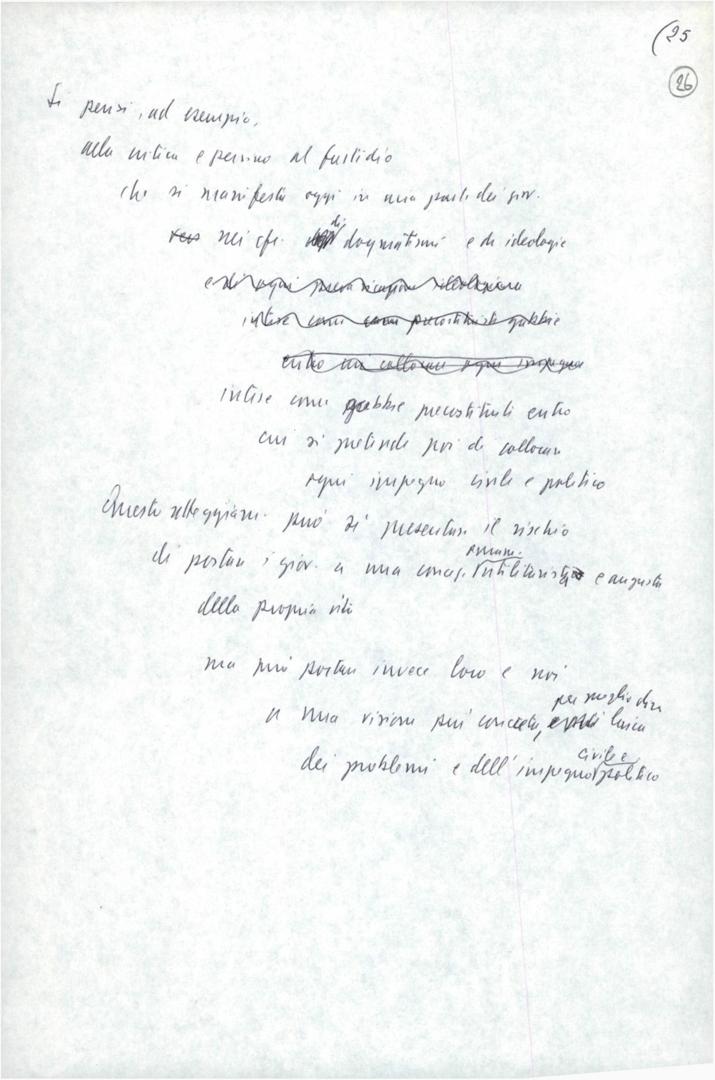 (25
26
Si pensi, ad esempio,
alla critica e persino al fastidio
che si manifesta oggi in una parte dei giov.
nei cfr. di dogmatismi e di ideologie
e di ogni
intese come precostituite gabbie
entro cui collocare ogni impegno
intese come gabbie precostituite entro
cui si pretende poi di collocare
ogni impegno civile e politico
Questo può sì presentare il rischio
di portare i giov. a una concez. utilitarista e angusta
della propria vita
ma può portare invece loro e noi
per meglio dire
a una visione più concreta, laica
civile e
dei problemi e dell'impegno politico